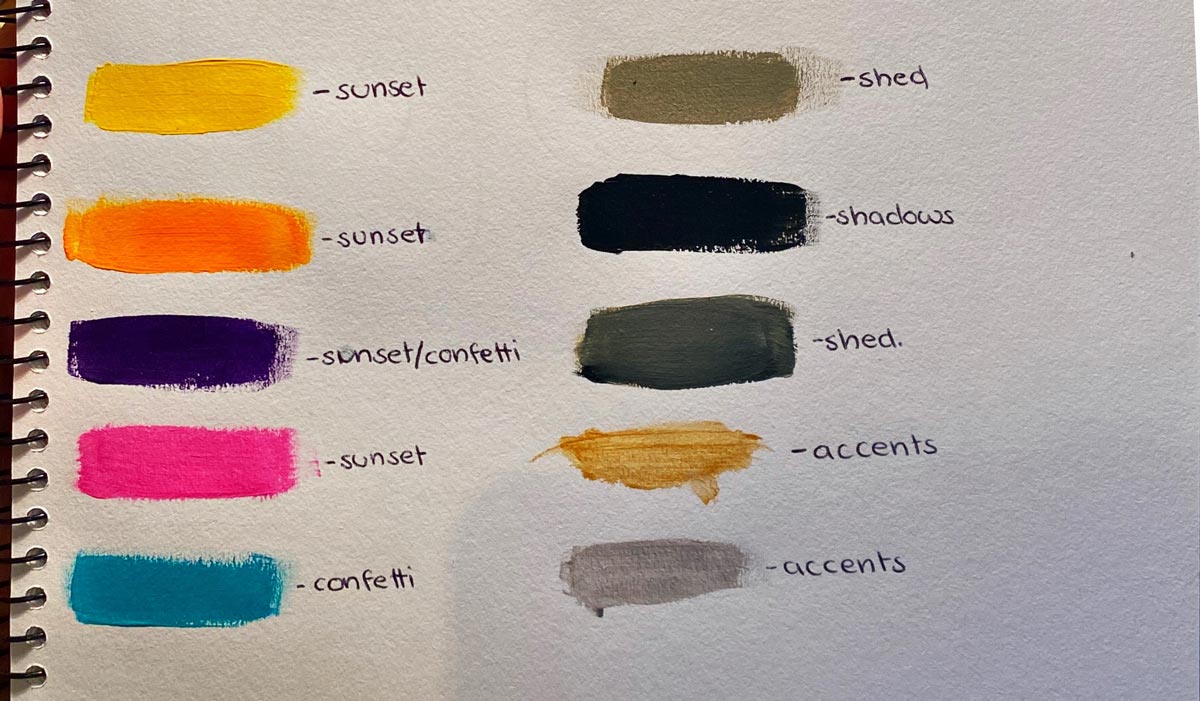 -sunset
-sunset
-sunset/confetti
-sunset
-confetti
-shed
-shadows
-shed.
-accents
-accents